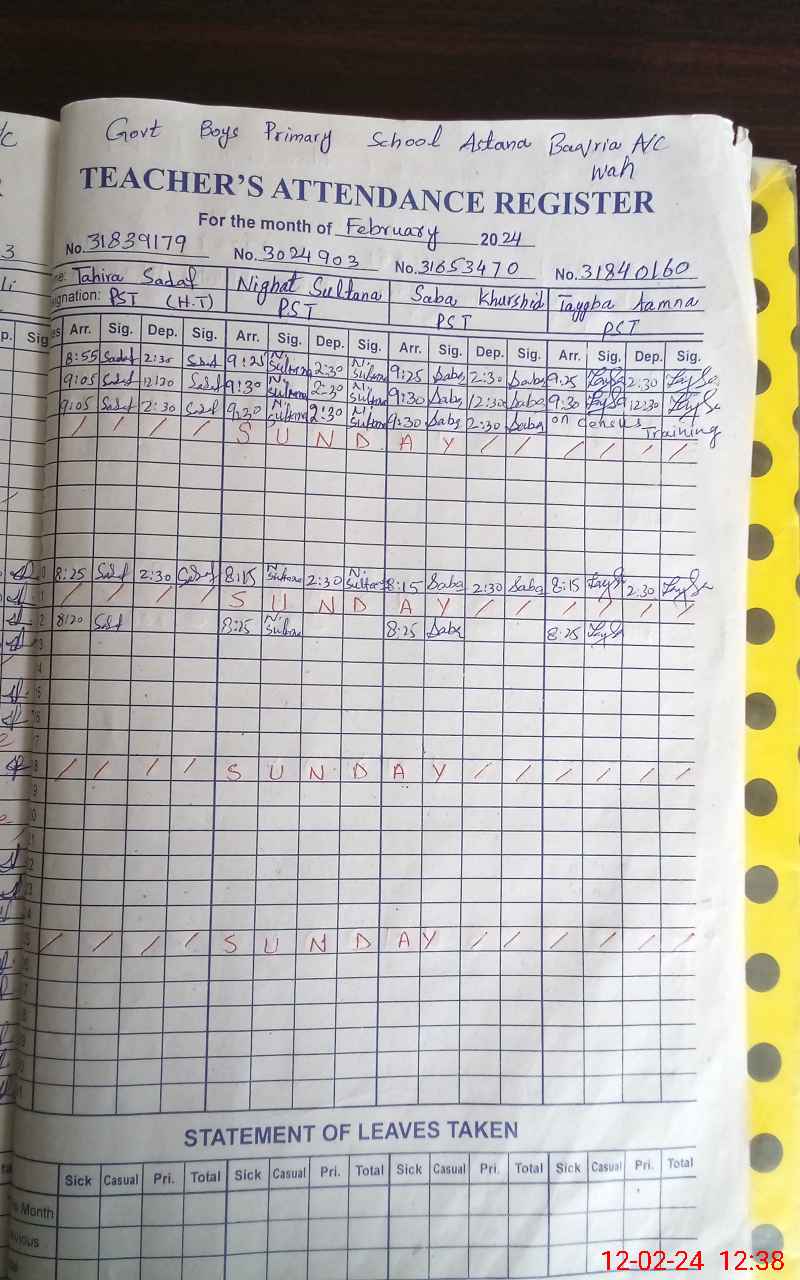 Govt Boys Primary School Astana Baqria A/C
Wah
TEACHER'S ATTENDANCE REGISTER
For the month of February 2024
No. 31839179 No. 3024903 No. 31653470 No. 31840160
Tahira Sadaf Nighat Sultana Saba Khurshid Tayyba Aamna
ignation: PST (H.T) PST PST PST
Arr. Sig. Dep. Sig. Arr. Sig. Dep. Sig. Arr. Sig. Dep. Sig. Arr. Sig. Dep. Sig.
8:55 Sadaf 2:30 Sadaf 9:25 N. Sultana 2:30 N. Sultana 9:25 Saba 2:30 Saba 9:25 2:30
9:05 Sadaf 12:30 Sadaf 9:30 N. Sultana 2:30 N. Sultana 9:30 Saba 12:30 Saba 9:30 12:30
9:05 Sadaf 2:30 Sadaf 9:30 N. Sultana 2:30 N. Sultana 9:30 Saba 2:30 Saba on census Training
/ / / / S U N D A Y / / / / / /
8:25 Sadaf 2:30 Sadaf 8:15 N. Sultana 2:30 N. Sultana 8:15 Saba 2:30 Saba 8:15 2:30
/ / / / S U N D A Y / / / / / /
8:20 Sadaf 8:25 N. Sultana 8:25 Saba 8:25
/ / / / S U N D A Y / / / / / /
/ / / / S U N D A Y / / / / / /
STATEMENT OF LEAVES TAKEN
Sick Casual Pri. Total Sick Casual Pri. Total Sick Casual Pri. Total Sick Casual Pri. Total
Month
12-02-24 12:38